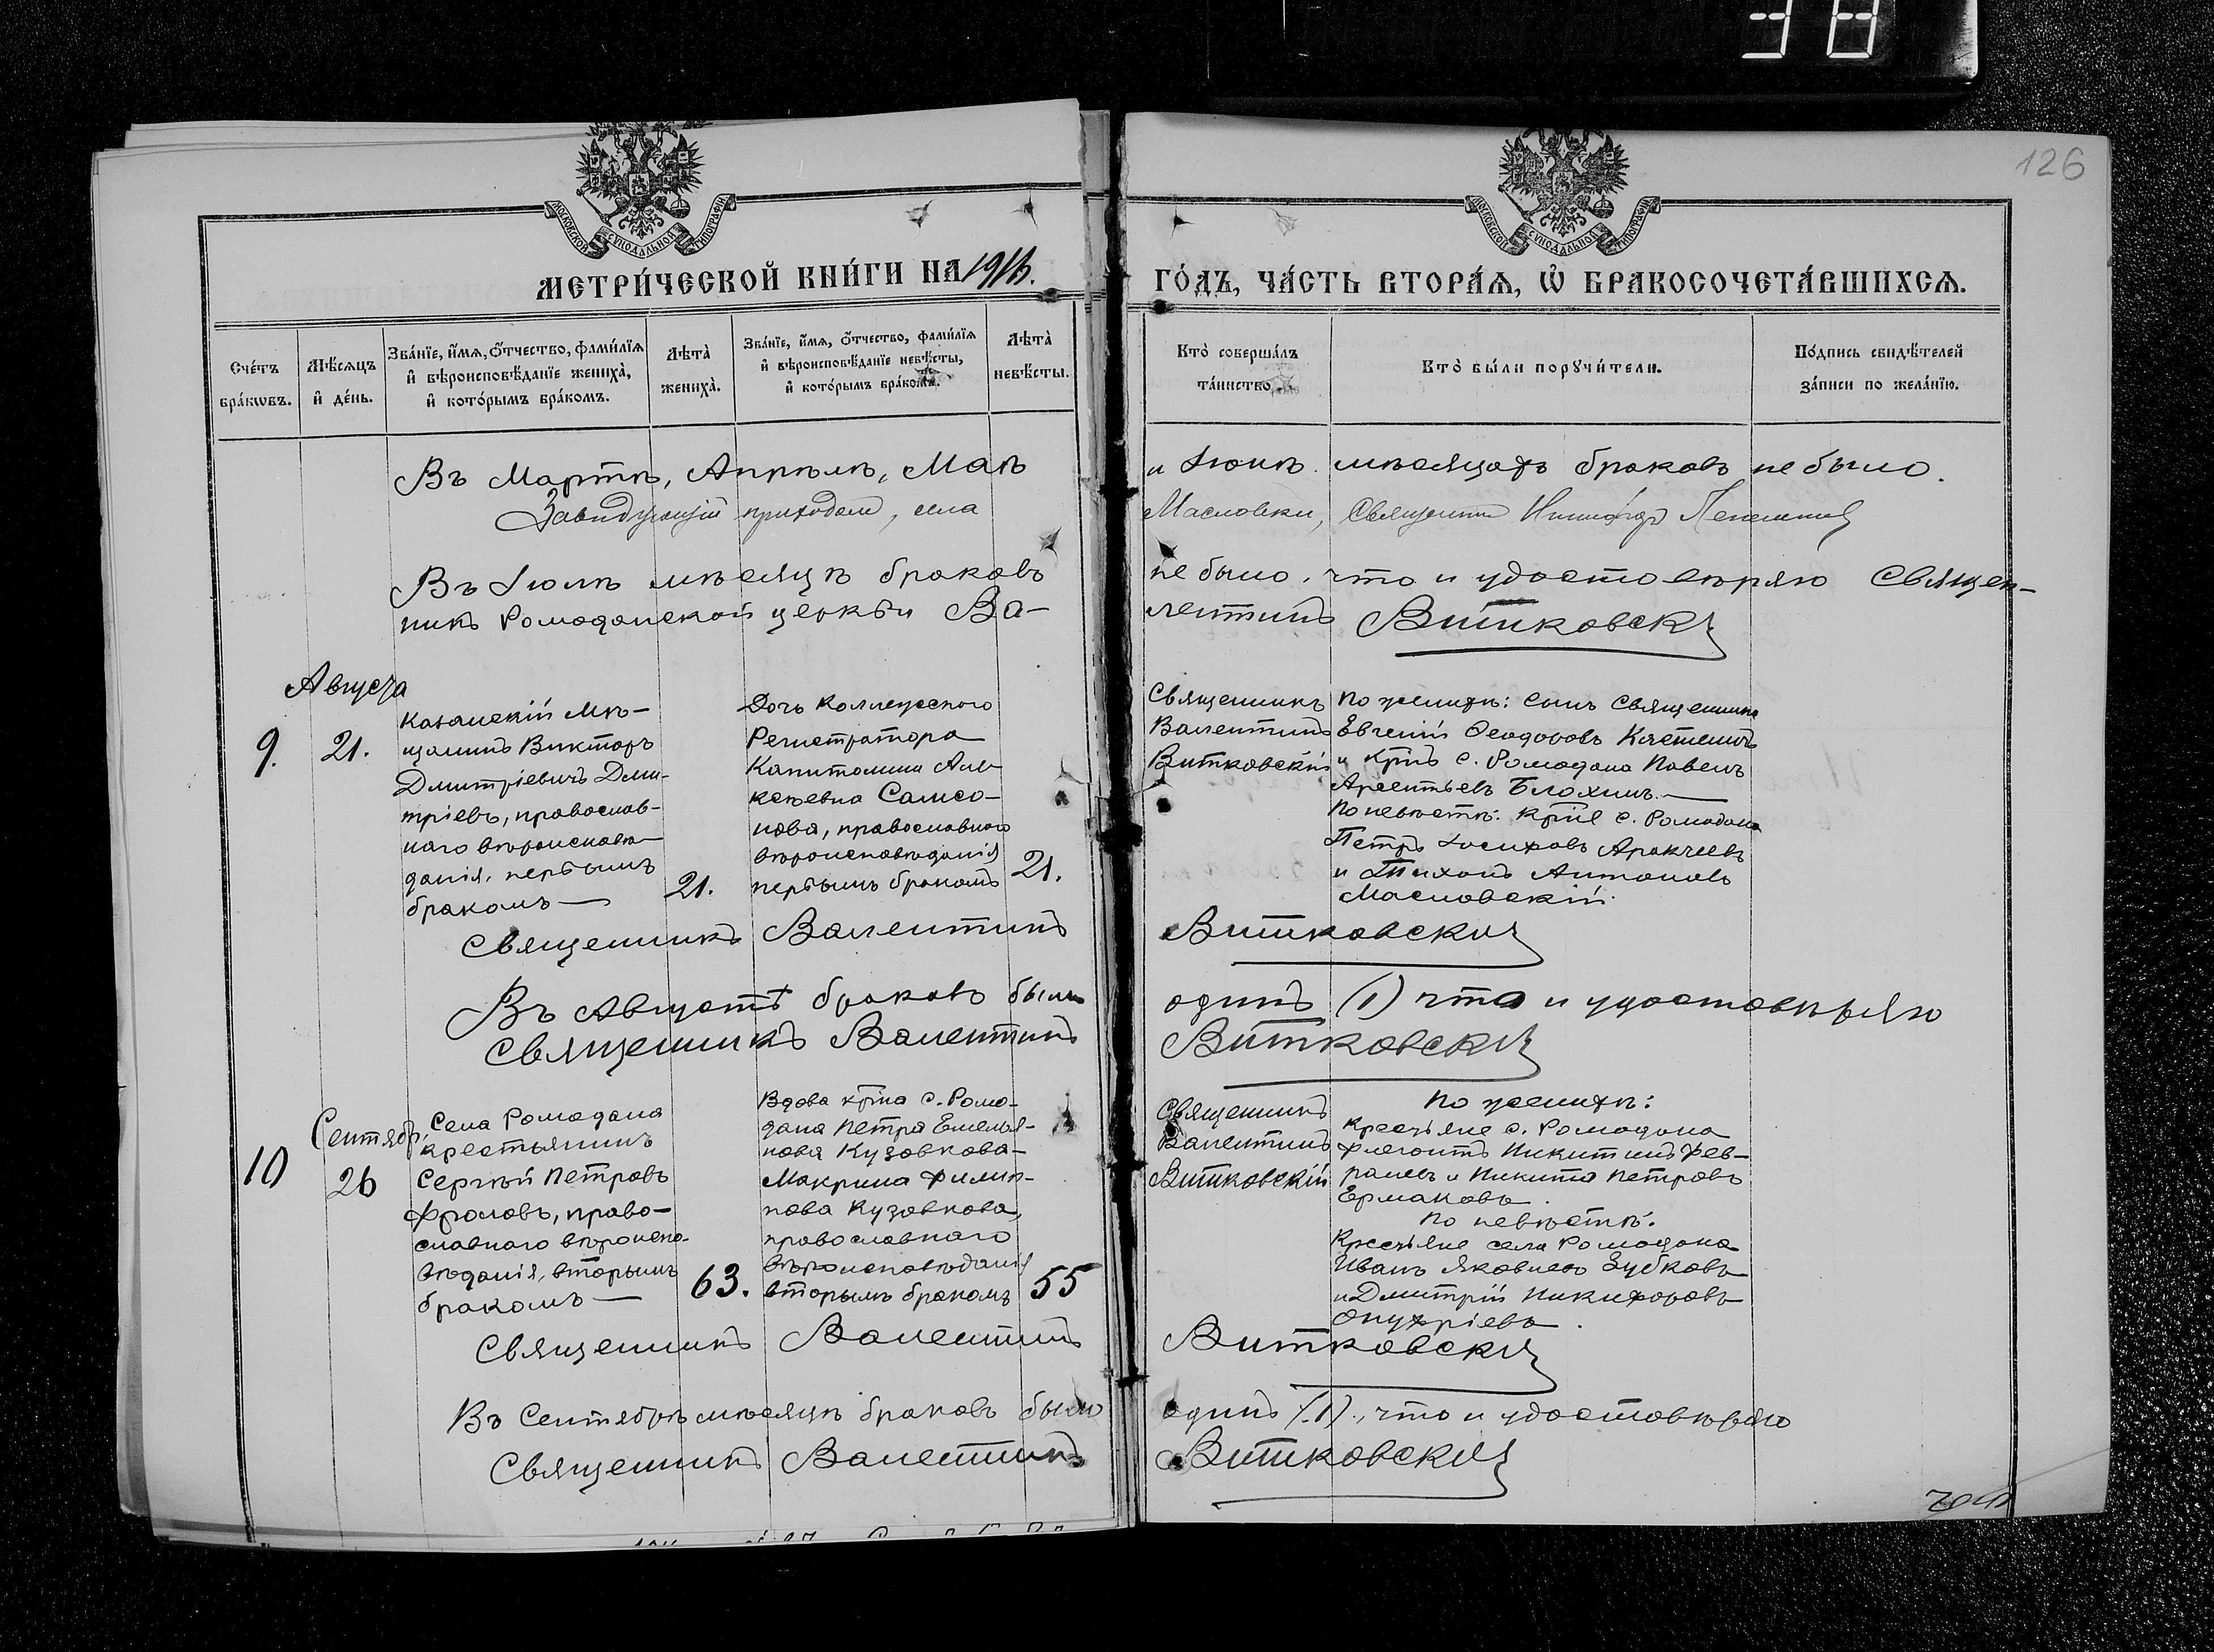 38
126
МОСКОВСКОЙ СѴНОДАЛЬНОЙ ТИПОГРАФІИ
МОСКОВСКОЙ СѴНОДАЛЬНОЙ ТИПОГРАФІИ
МЕТРИ́ЧЕСКОЙ КНИ́ГИ НА
ГО́ДЪ, ЧА́СТЬ ВТОРА́Ѧ, Ѡ҆ БРАКОСОЧЕТА́ВШИХСѦ.
Сче́тъ бра́кѡвъ.
Мѣ́сѧцъ и҆ де́нь.
Зва́нїе, и҆́мѧ, ѻ҆́тчество, фами́лїѧ и҆ вѣроисповѣ́данїе жениха̀, и҆ кото́рымъ бра́комъ.
Лѣта̀ жениха̀.
Зва́нїе, и҆́мѧ, ѻ҆́тчество, фами́лїѧ и҆ вѣроисповѣ́данїе невѣ́сты, и҆ кото́рымъ бра́комъ.
Лѣта̀ невѣ́сты.
Кто̀ соверша́лъ та́инство.
Кто̀ бы́ли порꙋчи́тели.
По́дпись свидѣ́телей за́писи по жела́нїю.
Въ Мартѣ, Апрѣлѣ, Маѣ и Іюнѣ мѣсяцахъ браковъ не было.
Завѣдующій приходомъ, села Масловки, Священникъ
Въ Іюлѣ мѣсяцѣ браковъ не было, что и удостовѣряю Священ-
никъ Ромоданской церкви Ва- лентинъ Витковскій
Августа
9.
21.
Казанскій Мѣ-
щанинъ Викторъ
Дмитріевичъ Дми-
тріевъ, православ-
наго вѣроисповѣ-
данія, первымъ
бракомъ —
21.
Дочь Коллежского
Регистратора
Капитолина Але-
ксѣевна Самсо-
нова, православного
вѣроисповѣданія
первымъ бракомъ
21.
Священникъ
Валентинъ
Витковскій
По женихѣ: сынъ Священника
Евгеній Ѳеодоровъ
и крнъ с. Ромодана Павелъ
Арсентьевъ Блохинъ. —
По невѣстѣ: крне с. Ромодана
Петръ Іосифовъ Аракчеевъ
и Тихонъ Антоновъ
Масловскій.
Священникъ Валентинъ Витковскій
Въ Августѣ браковъ былъ одинъ (1) что и удостовѣряю
Священникъ Валентинъ Витковскій
Сентябр.
10
26
Села Ромодана
крестьянинъ
Сергѣй Петровъ
Фроловъ, право-
славнаго вѣроиспо-
вѣданія, вторымъ
бракомъ —
63.
Вдова крна с. Ромо-
дана Петра Емелья-
нова Кузовкова —
Макрина Филип-
пова Кузовкова,
православнаго
вѣроисповѣданія
вторымъ бракомъ
55
Священникъ
Валентинъ
Витковскій
По женихѣ:
Крестьяне с. Ромодана
Флегонтъ Никитинъ Фев-
ралевъ и Никита Петровъ
Ермаковъ.
По невѣстѣ:
Крестьяне села Ромодана
Иванъ Яковлевъ Зубковъ
и Дмитрій Никифоровъ
Онуфріевъ.
Священникъ Валентинъ Витковскій
Въ Сентябрѣ мѣсяцѣ браковъ было одинъ (1), что и удостовѣряю
Священникъ Валентинъ Витковскій